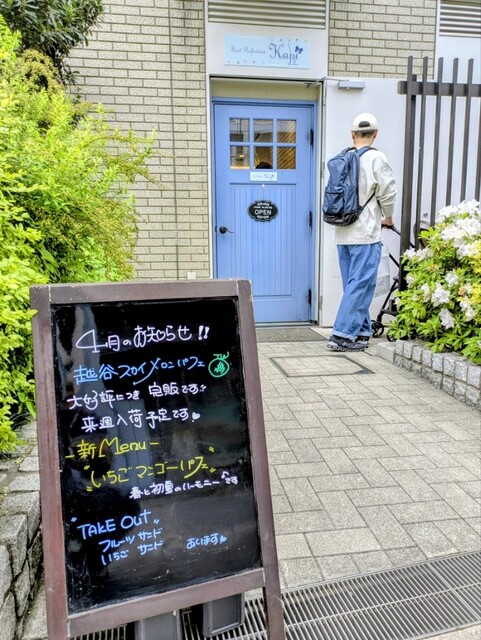 Fruit Perfection
Kaji
OPEN
4月のお知らせ!!
越谷スカイメロンパフェ
大好評につき 完販です!!
来週入荷予定です
-新Menu-
"いちごマンゴーパフェ"
春と初夏のハーモニー♪です
"TAKE OUT"
フルーツサンド
いちごサンド
あります